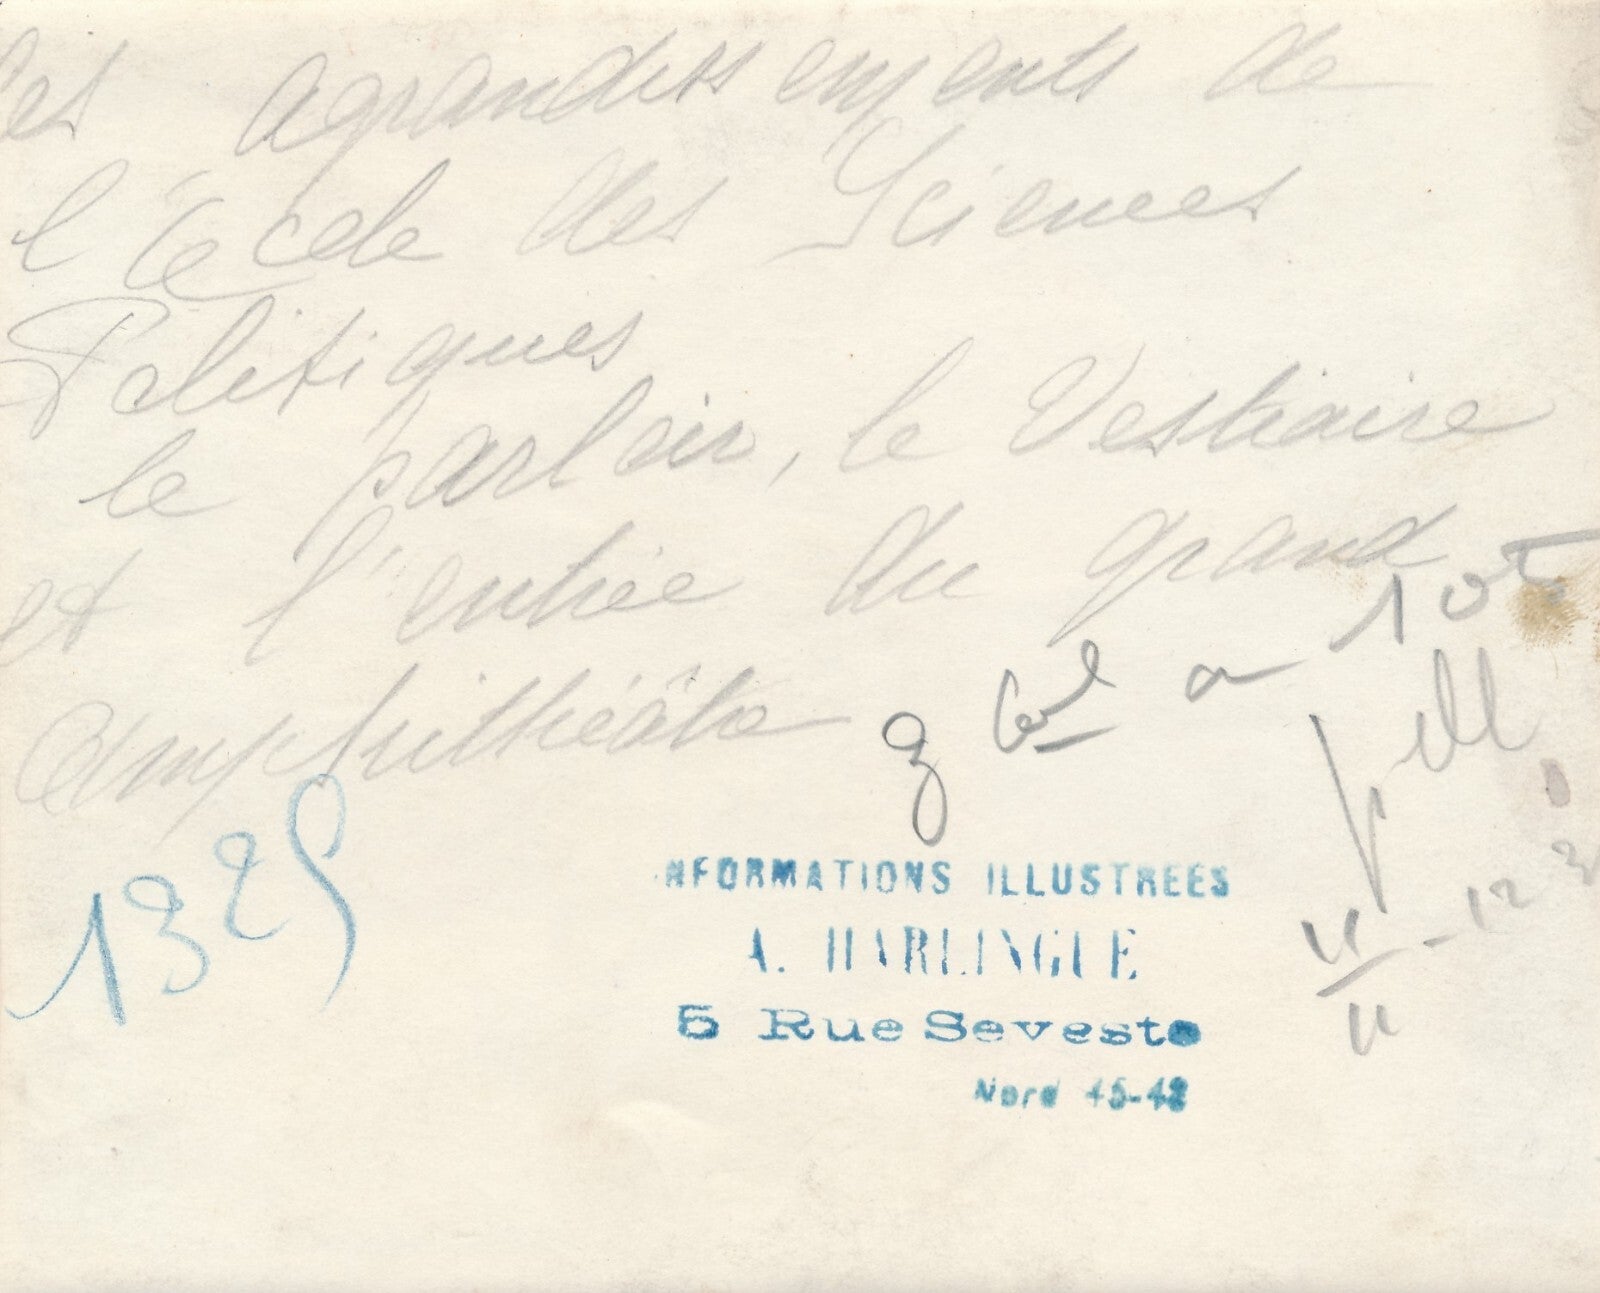 Les agrandissements de
l'école des Sciences
Politiques
le parloir, le Vestiaire
et l'entrée du grand
amphithéâtre
1325
3 col a 10
NFORMATIONS ILLUSTREES
A. HARLINGUE
5 Rue Seveste
Nord 45-42